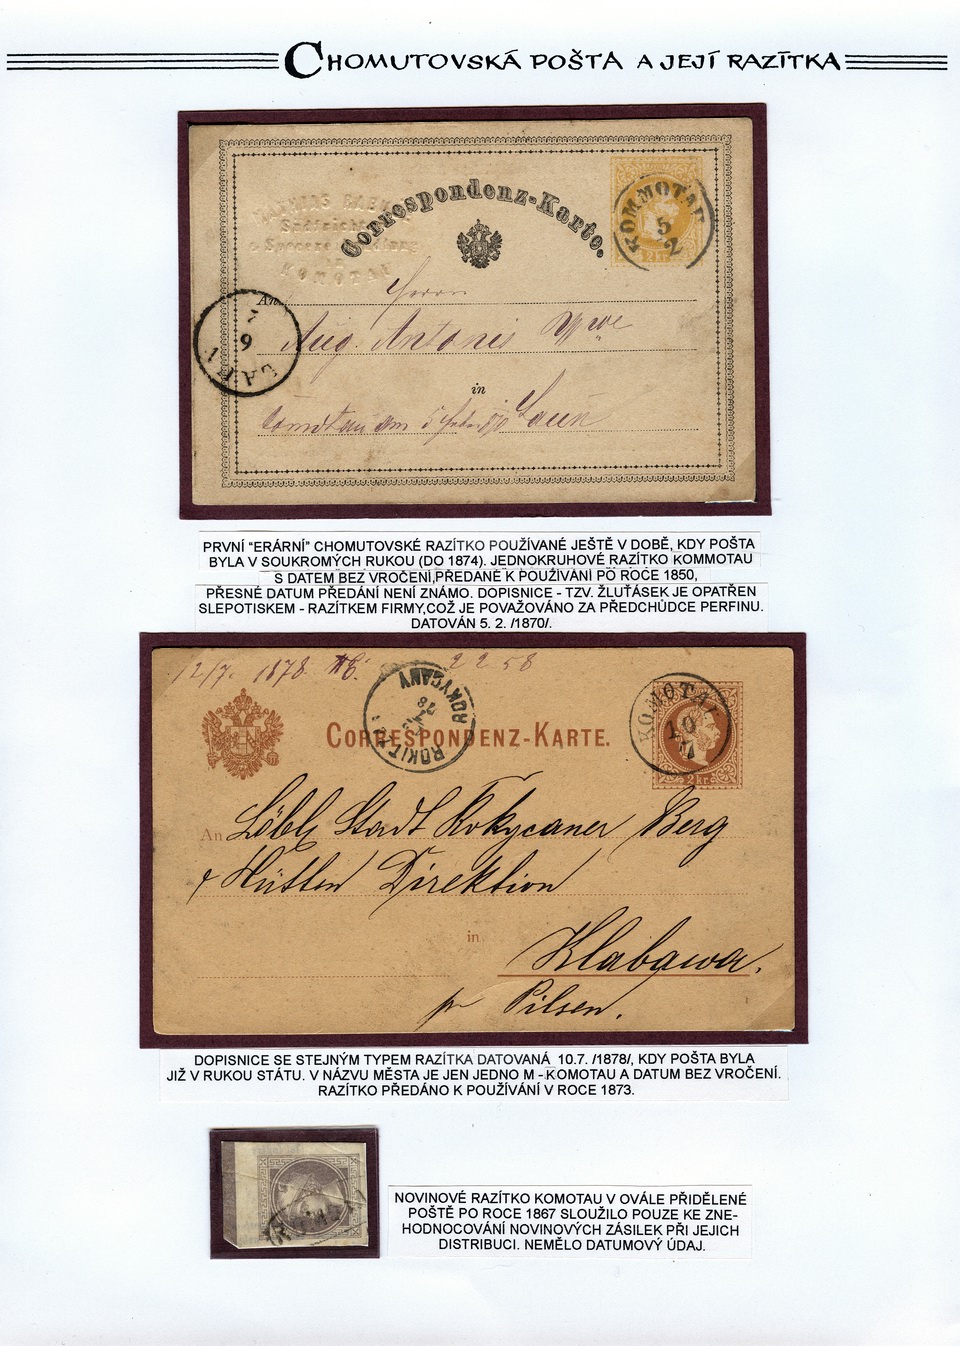 CHOMUTOVSKÁ POŠTA A JEJÍ RAZÍTKA
Correspondenz-Karte.
KOMMOTAU
5
2
KOMOTAU
2 kr.
An
Herrn
Aug. Antonis
in
Laun
LAUN
PRVNÍ “ERÁRNÍ” CHOMUTOVSKÉ RAZÍTKO POUŽÍVANÉ JEŠTĚ V DOBĚ, KDY POŠTA
BYLA V SOUKROMÝCH RUKOU (DO 1874). JEDNOKRUHOVÉ RAZÍTKO KOMMOTAU
S DATEM BEZ VROČENÍ,PŘEDANÉ K POUŽÍVÁNÍ PO ROCE 1850,
PŘESNÉ DATUM PŘEDÁNÍ NENÍ ZNÁMO. DOPISNICE - TZV. ŽLUŤÁSEK JE OPATŘEN
SLEPOTISKEM - RAZÍTKEM FIRMY,COŽ JE POVAŽOVÁNO ZA PŘEDCHŮDCE PERFINU.
DATOVÁN 5. 2. /1870/.
12/7. 1878. 2258
ROKYCANY
CORRESPONDENZ-KARTE.
KOMOTAU
10
7
2 kr.
An Löbl Stadt Rokycaner Berg
& Hütten Direktion
in
Klabawa.
pr Pilsen.
DOPISNICE SE STEJNÝM TYPEM RAZÍTKA DATOVANÁ 10.7. /1878/, KDY POŠTA BYLA
JIŽ V RUKOU STÁTU. V NÁZVU MĚSTA JE JEN JEDNO M - KOMOTAU A DATUM BEZ VROČENÍ.
RAZÍTKO PŘEDÁNO K POUŽÍVÁNÍ V ROCE 1873.
NOVINOVÉ RAZÍTKO KOMOTAU V OVÁLE PŘIDĚLENÉ
POŠTĚ PO ROCE 1867 SLOUŽILO POUZE KE ZNE-
HODNOCOVÁNÍ NOVINOVÝCH ZÁSILEK PŘI JEJICH
DISTRIBUCI. NEMĚLO DATUMOVÝ ÚDAJ.